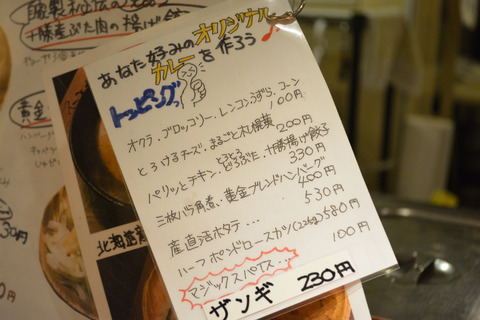 あなた好みのオリジナル
カレーを作ろう♪
トッピング
オクラ・ブロッコリー・レンコン・うずら・コーン
100円
とろけるチーズ・まるごと札幌黄
200円
パリッとチキン・とろとろどろぶた・十勝揚げ餃子
330円
三枚バラ角煮・黄金ブレンドハンバーグ
400円
産直活ホタテ・・・
530円
ハーフポンドロースカツ(226g)580円
マジックスパイス・・・
100円
ザンギ 230円
十勝産ぶた肉の揚げ餃
黄金
北海道産